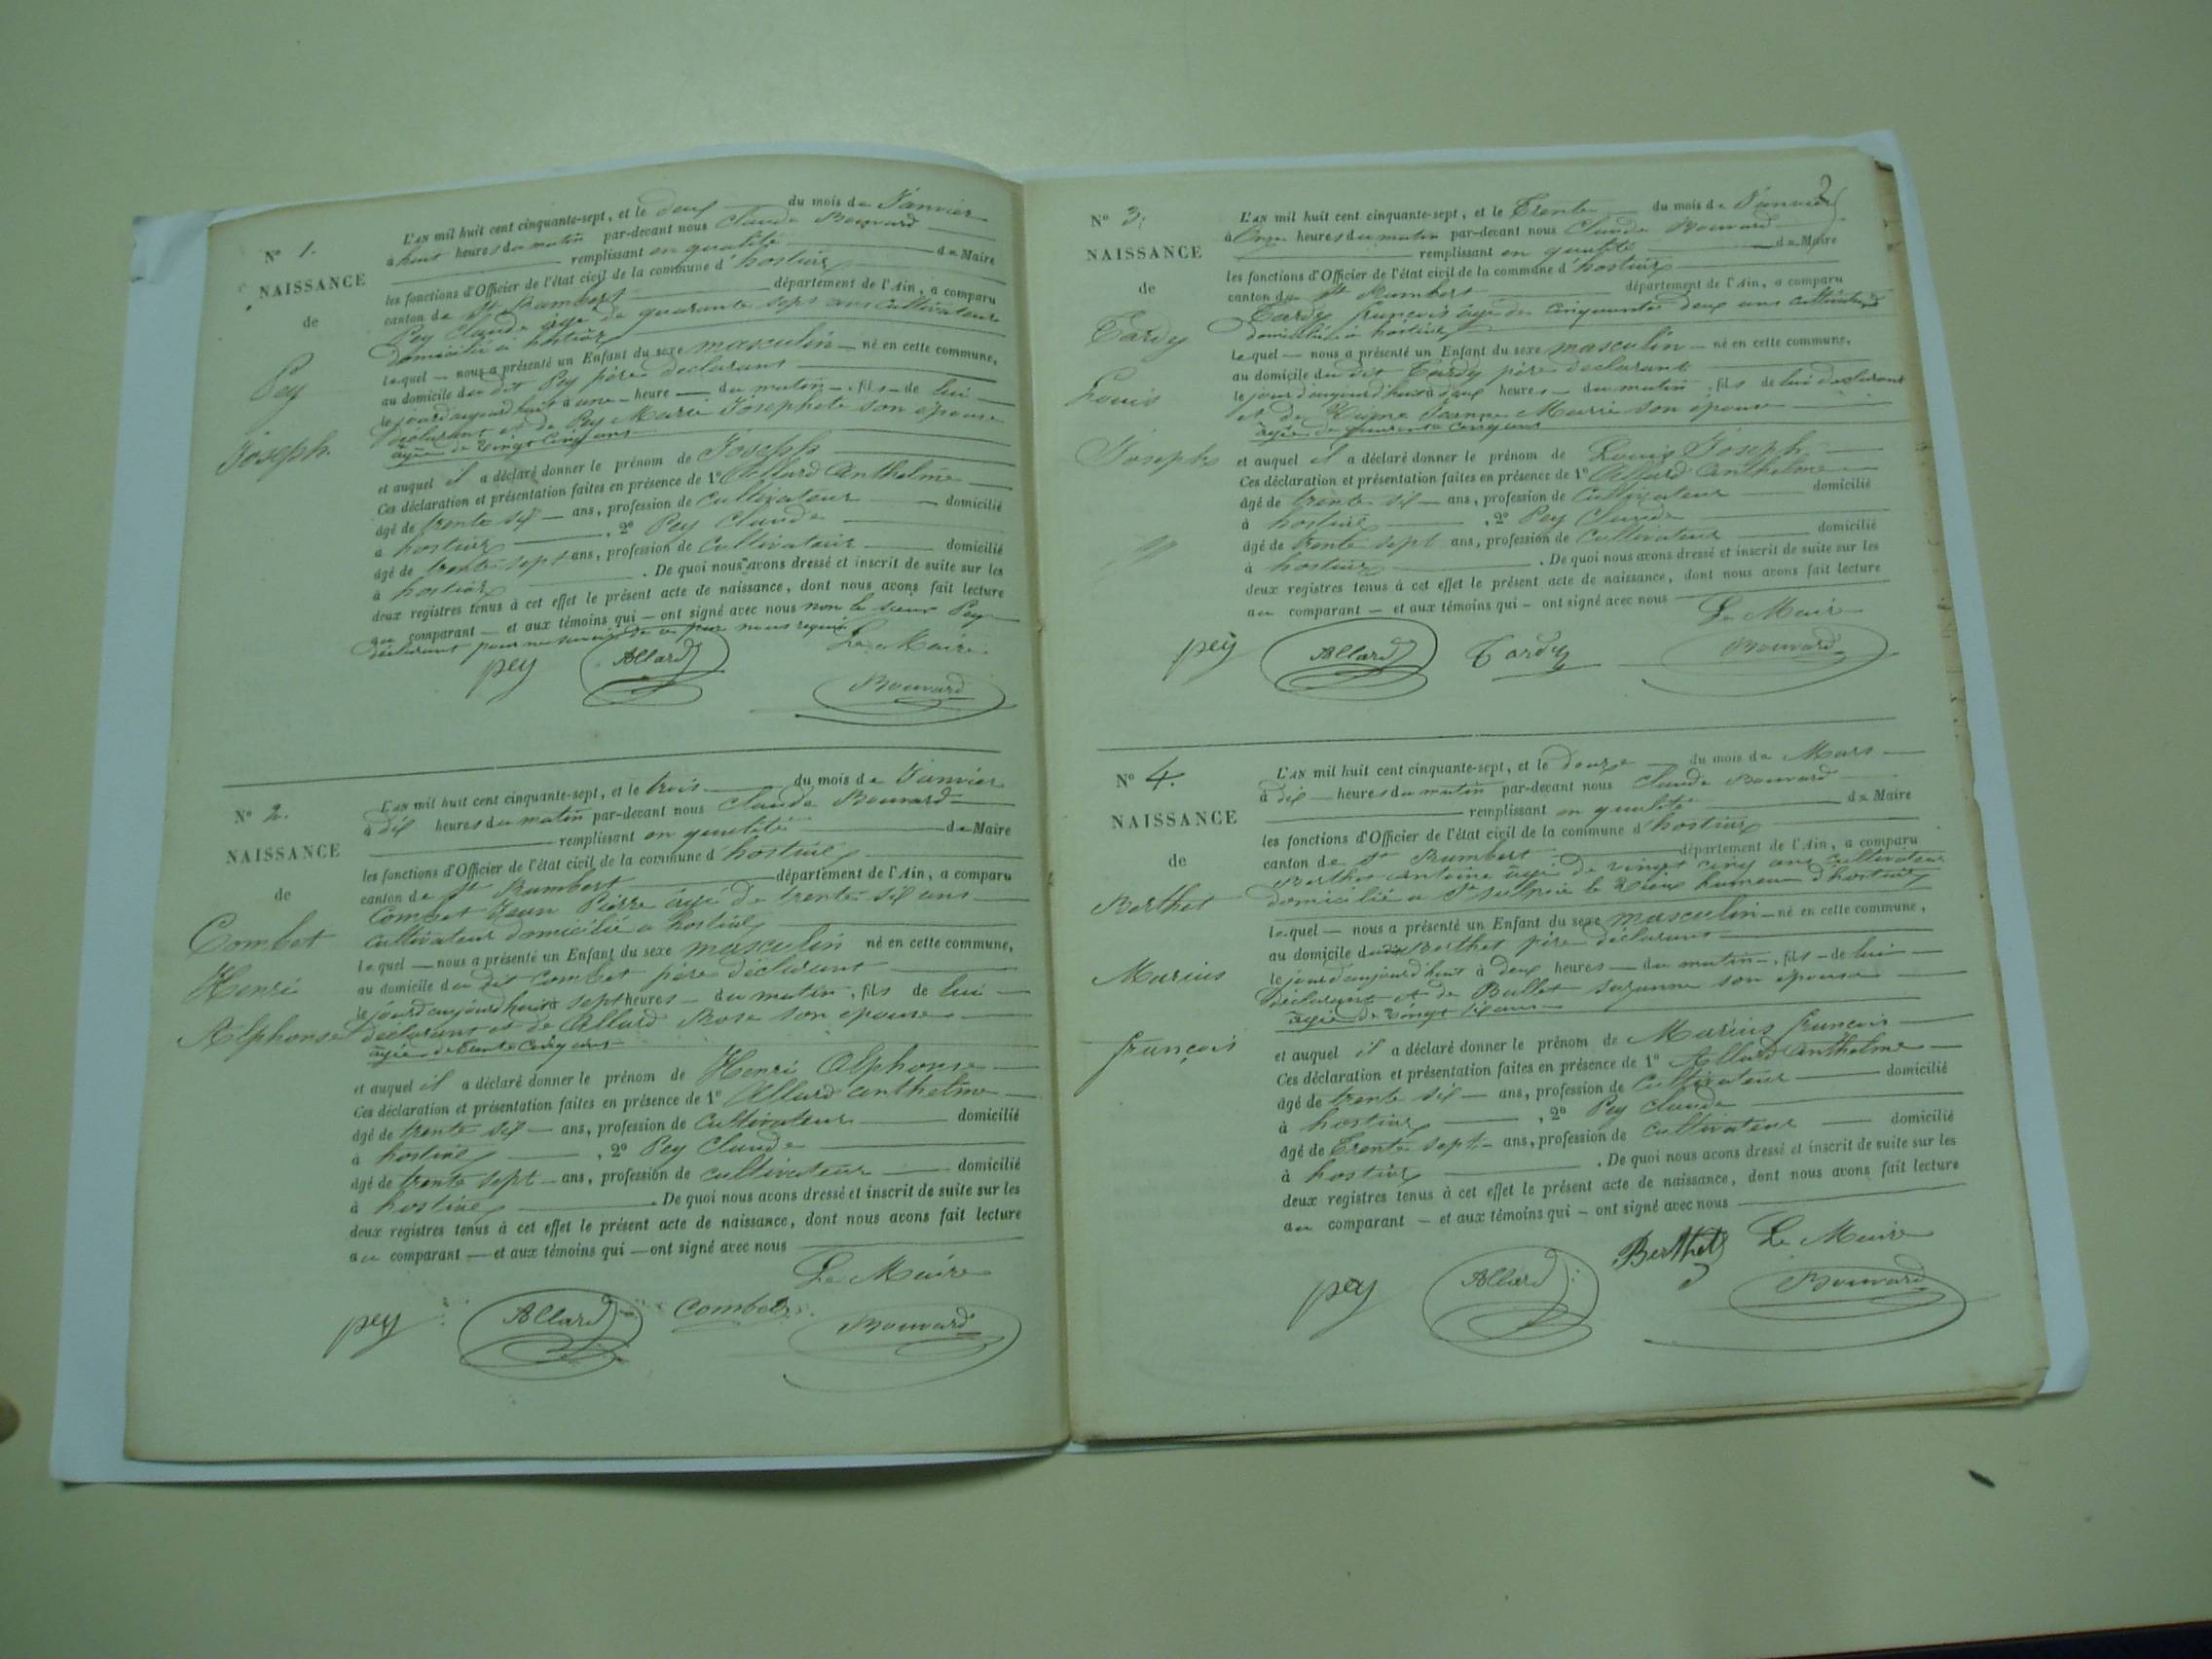 N° 1.
NAISSANCE
de
Pey
Joseph
L'AN mil huit cent cinquante-sept, et le deux du mois de Janvier
à huit heures du matin par-devant nous Claude Bouvard
remplissant en qualité de Maire
les fonctions d'Officier de l'état civil de la commune d'hostiaz
canton de St Rambert département de l'Ain, a comparu
Pey Claude âgé de quarante sept ans cultivateur
domicilié à hostiaz
lequel nous a présenté un Enfant du sexe masculin né en cette commune,
au domicile du dit Pey père déclarant
le jour d'aujourd'huit à une heure du matin, fils de lui
déclarant et de Pey Marie Josephete son épouse
âgée de vingt cinq ans
et auquel il a déclaré donner le prénom de Joseph
Ces déclaration et présentation faites en présence de 1° Allard Anthelme
âgé de trente six ans, profession de Cultivateur domicilié
à hostiaz, 2° Pey Claude
âgé de trente sept ans, profession de Cultivateur domicilié
à hostiaz. De quoi nous avons dressé et inscrit de suite sur les
deux registres tenus à cet effet le présent acte de naissance, dont nous avons fait lecture
au comparant et aux témoins qui ont signé avec nous non le sieur Pey
déclarant pour ne savoir de ce par nous requis
Le Maire
pey Allard Bouvard
N° 2.
NAISSANCE
de
Combet
Henri
Alphonse
L'AN mil huit cent cinquante-sept, et le trois du mois de Janvier
à dix heures du matin par-devant nous Claude Bouvard
remplissant en qualité de Maire
les fonctions d'Officier de l'état civil de la commune d'hostiaz
canton de St Rambert département de l'Ain, a comparu
Combet Jean Pierre âgé de trente six ans
cultivateur domicilié à hostiaz
lequel nous a présenté un Enfant du sexe masculin né en cette commune,
au domicile du dit Combet père déclarant
le jour d'aujourd'huit à sept heures du matin, fils de lui
déclarant et de Allard Rose son épouse
âgée de trente cinq ans
et auquel il a déclaré donner le prénom de Henri Alphonse
Ces déclaration et présentation faites en présence de 1° Allard anthelme
âgé de trente six ans, profession de Cultivateur domicilié
à hostiaz, 2° Pey Claude
âgé de trente sept ans, profession de cultivateur domicilié
à hostiaz. De quoi nous avons dressé et inscrit de suite sur les
deux registres tenus à cet effet le présent acte de naissance, dont nous avons fait lecture
au comparant et aux témoins qui ont signé avec nous
Le Maire
pey Allard Combet Bouvard
2
N° 3.
NAISSANCE
de
Tardy
Louis
Joseph
L'AN mil huit cent cinquante-sept, et le Trente du mois de Janvier
à Onze heures du matin par-devant nous Claude Bouvard
remplissant en qualité de Maire
les fonctions d'Officier de l'état civil de la commune d'hostiaz
canton de St Rambert département de l'Ain, a comparu
Tardy françois âgé de cinquante deux ans cultivateur
domicilié à hostiaz
lequel nous a présenté un Enfant du sexe masculin né en cette commune,
au domicile du dit Tardy père déclarant
le jour d'aujourd'huit à deux heures du matin, fils de lui déclarant
et de Jeanne Marie son épouse
âgée de quarante cinq ans
et auquel il a déclaré donner le prénom de Louis Joseph
Ces déclaration et présentation faites en présence de 1° Allard anthelme
âgé de trente six ans, profession de Cultivateur domicilié
à hostiaz, 2° Pey Claude
âgé de trente sept ans, profession de Cultivateur domicilié
à hostiaz. De quoi nous avons dressé et inscrit de suite sur les
deux registres tenus à cet effet le présent acte de naissance, dont nous avons fait lecture
au comparant et aux témoins qui ont signé avec nous
Le Maire
pey Allard Tardy Bouvard
N° 4.
NAISSANCE
de
Berthet
Marius
françois
L'AN mil huit cent cinquante-sept, et le douze du mois de Mars
à dix heures du matin par-devant nous Claude Bouvard
remplissant en qualité de Maire
les fonctions d'Officier de l'état civil de la commune d'hostiaz
canton de St Rambert département de l'Ain, a comparu
Berthet Antoine âgé de vingt cinq ans cultivateur
domicilié à St sulpice le Vieux hameau d'hostiaz
lequel nous a présenté un Enfant du sexe masculin né en cette commune,
au domicile dudit Berthet père déclarant
le jour d'aujourd'huit à deux heures du matin, fils de lui
déclarant et de Ballet suzanne son épouse
âgée de vingt six ans
et auquel il a déclaré donner le prénom de Marius françois
Ces déclaration et présentation faites en présence de 1° Allard anthelme
âgé de trente six ans, profession de Cultivateur domicilié
à hostiaz, 2° Pey claude
âgé de Trente sept ans, profession de Cultivateur domicilié
à hostiaz. De quoi nous avons dressé et inscrit de suite sur les
deux registres tenus à cet effet le présent acte de naissance, dont nous avons fait lecture
au comparant et aux témoins qui ont signé avec nous
Berthet Le Maire
pey Allard Bouvard